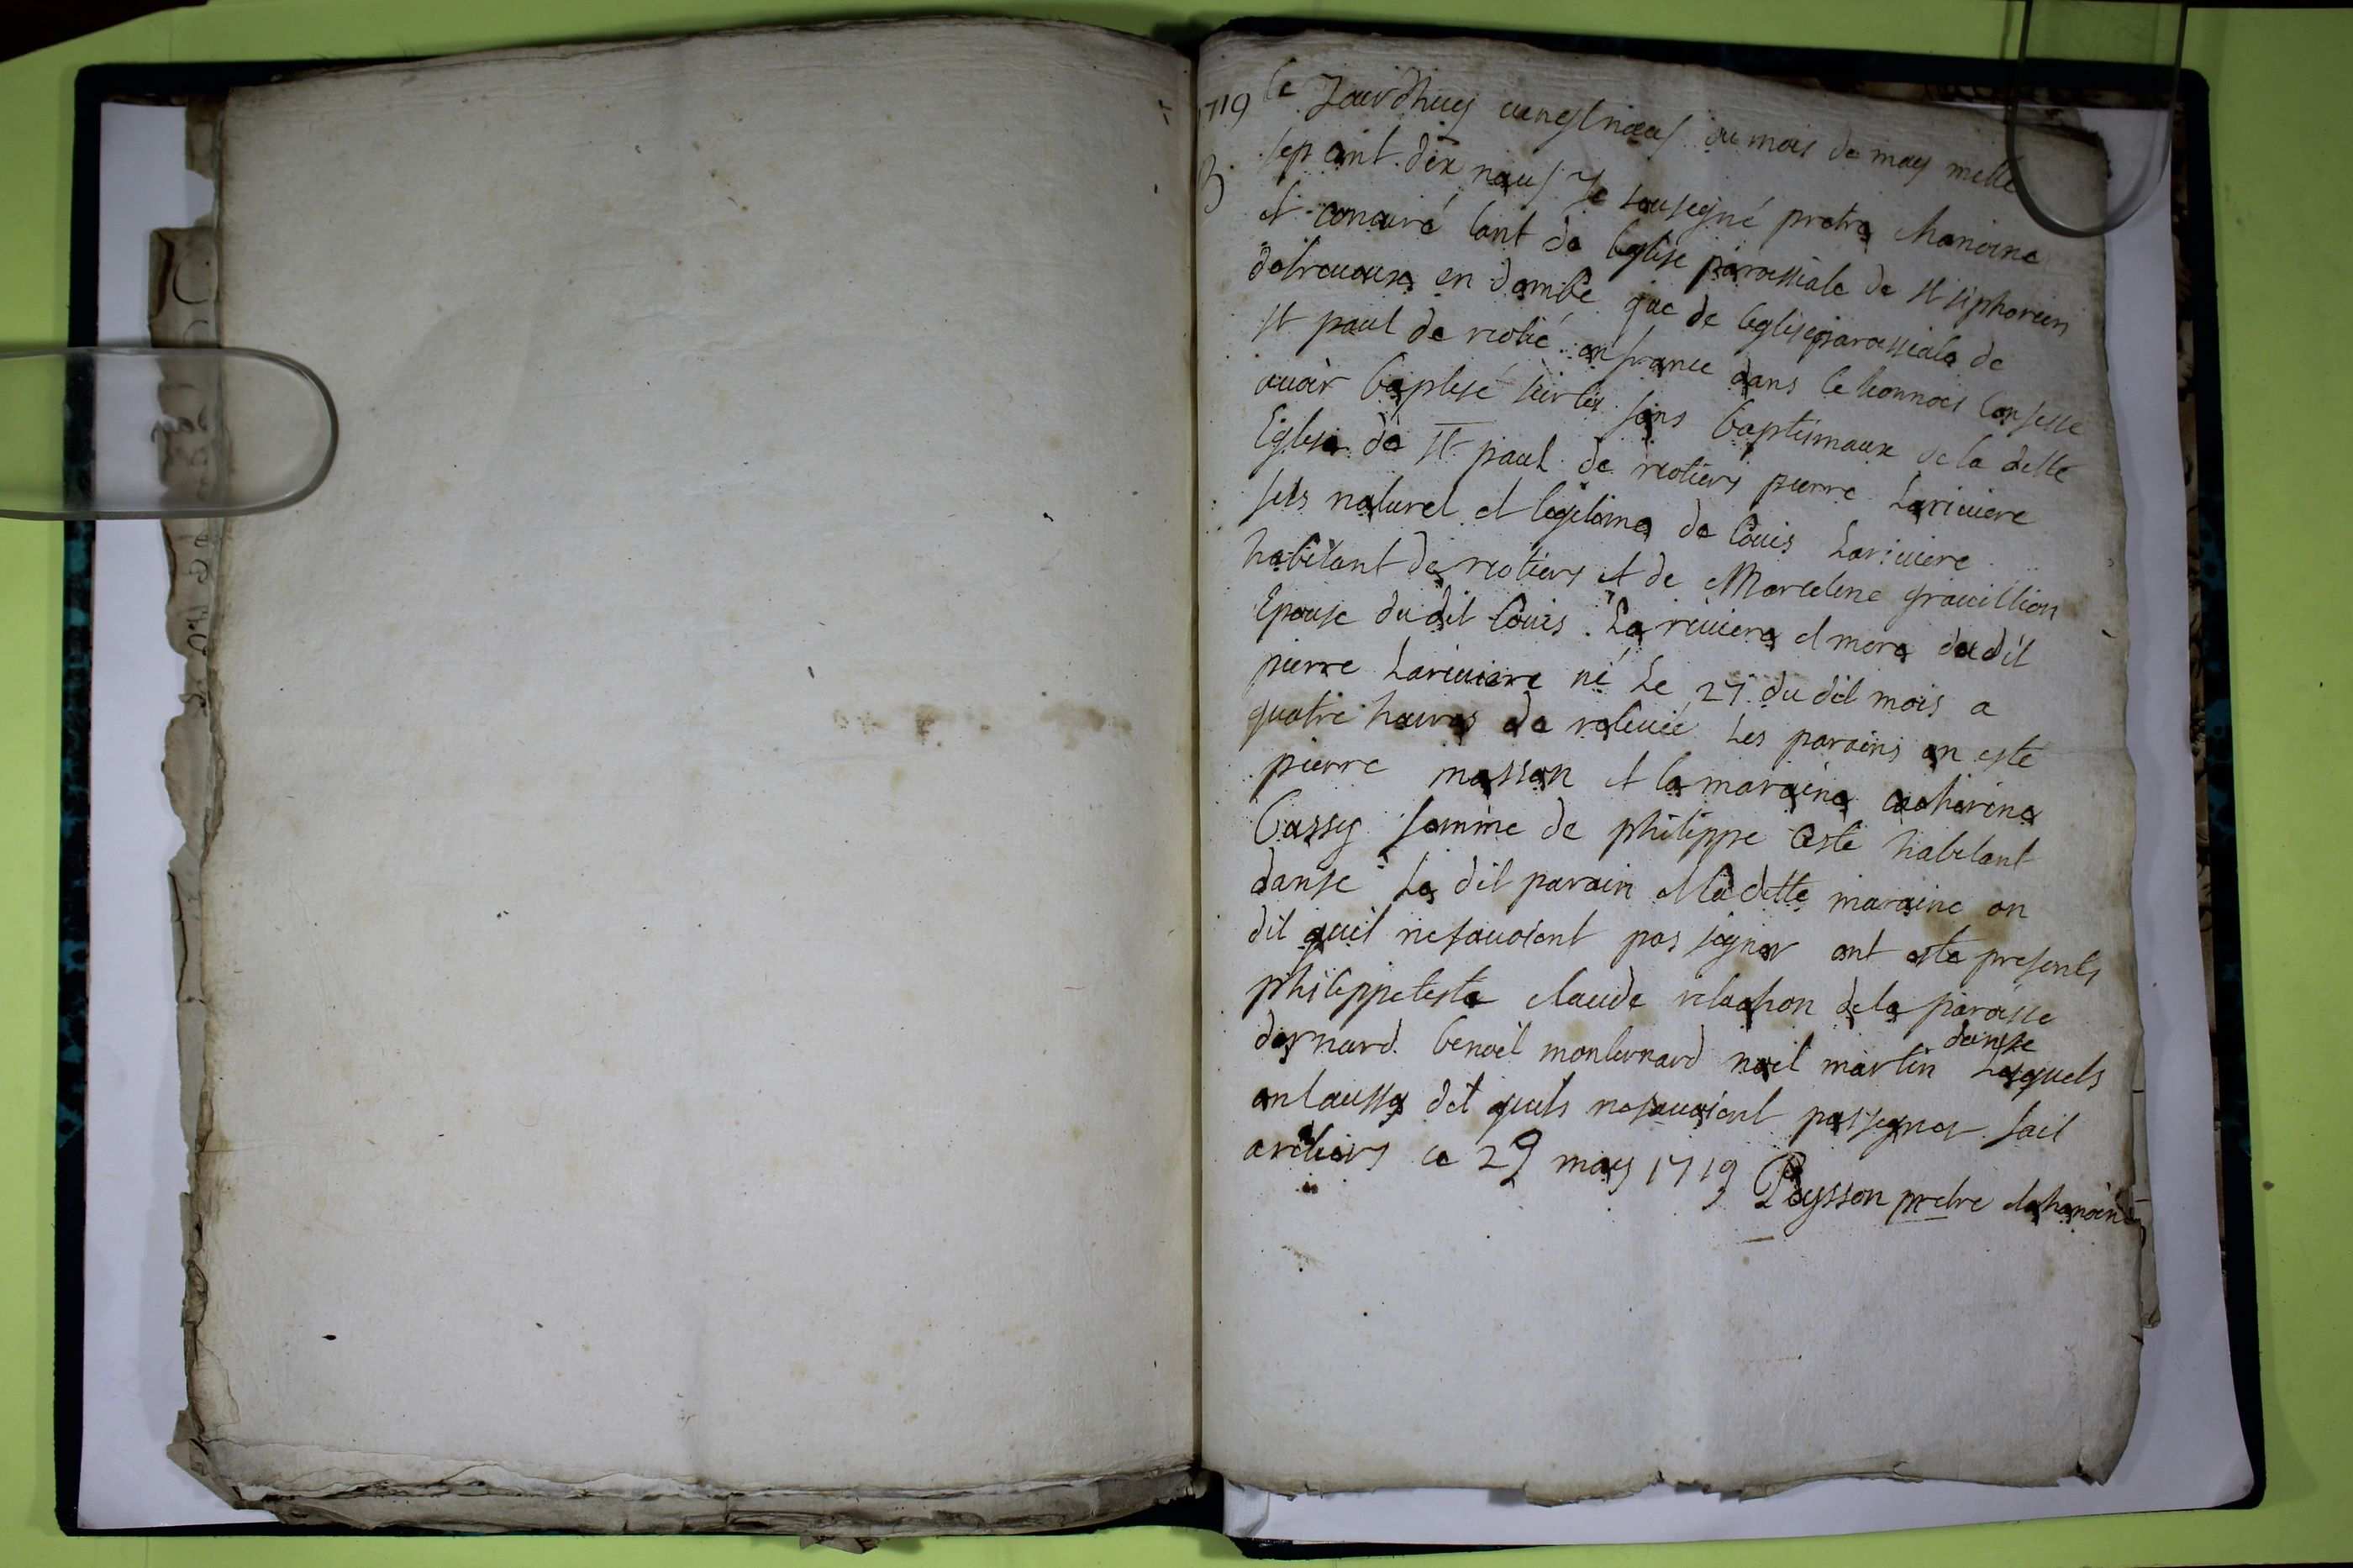 1719
B
le Jourdhuy vingtneuf du mois de may mille
sept cent dix neuf Je sousigné pretre chanoine
et concuré tant de leglise paroissiale de st siphorien
detrevoux en dombe que de legliseparoissiale de
st paul de reotié en france dans le lionnois confesse
avoir baptisé sur les fons baptismaux de la ditte
Eglise de st paul de reotiers pierre Lariviere
fils naturel et legitime de Louis Lariviere
habitant de reotiers et de Marceline gravillion
Epouse du dit Louis Lariviere et mere du dit
pierre Lariviere né Le 27 du dit mois a
quatre heures de relevée Les parains on esté
pierre masson et la maraine catherine
bassy femme de philippe teste habitant
danse Le dit parain et la ditte maraine on
dit quil nesavoient pas signer ont este presents
philippe teste claude relachon de la paroisse
danse
darnard benoit monbernard noel martin Lesquels
ontaussy dit quils nesavoient passigner fait
areotiers ce 29 may 1719 Peysson pretre chanoine